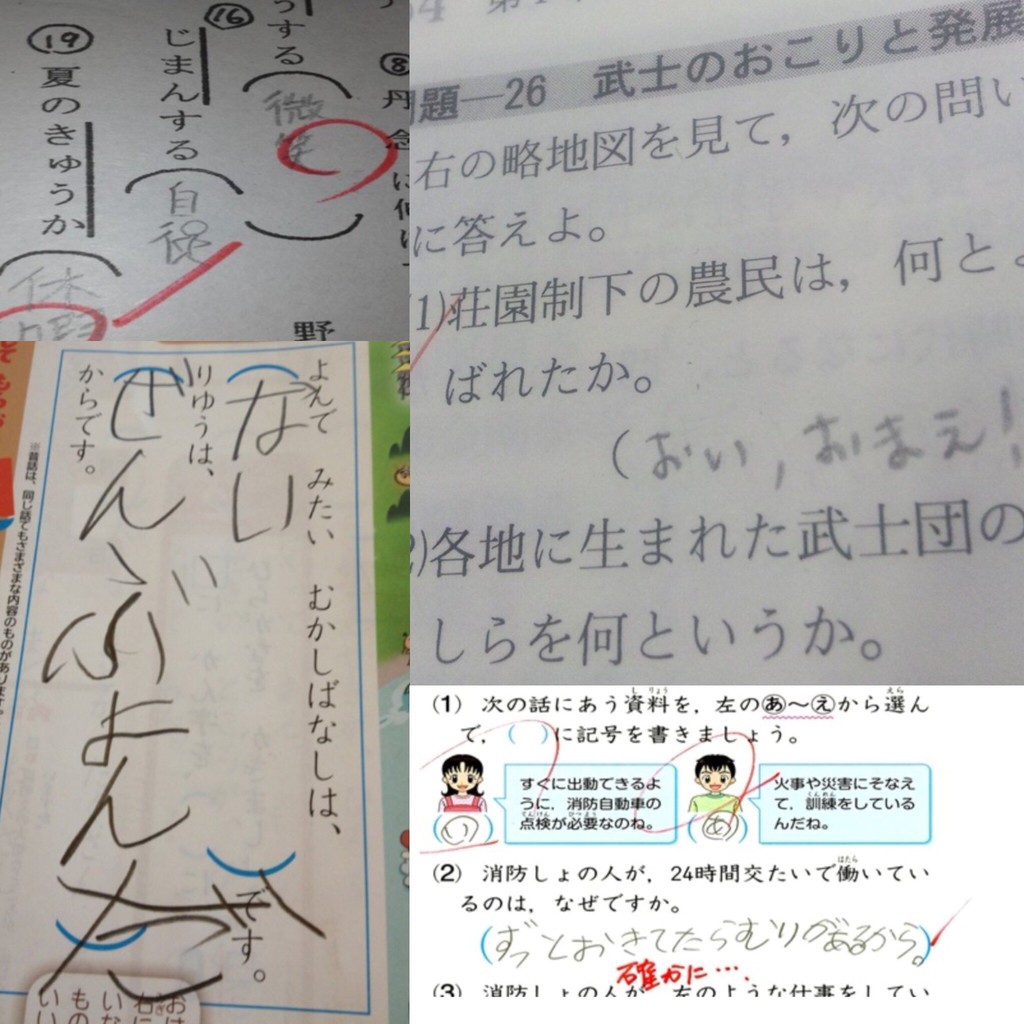 ⑲夏のきゅうか
休暇
⑯
じまんする
自
うする
微笑
⑧
丹念に何
野
64 第1
問題—26 武士のおこりと発展
右の略地図を見て，次の問い
に答えよ。
(1)荘園制下の農民は，何とよ
ばれたか。
(おい，おまえ！
(2)各地に生まれた武士団の
しらを何というか。
よんで みたい むかしばなしは、
(ない)です。
りゆうは、
(ぜんぶよんだ)
からです。
※昔話は、同じ話でもさまざまな内容のものがあります。
(1) 次の話にあう資料を，左のあ～えから選ん
で，( )に記号を書きましょう。
すぐに出動できるよ
うに，消防自動車の
点検が必要なのね。
(い)
火事や災害にそなえ
て，訓練をしている
んだね。
(あ)
(2) 消防しょの人が，24時間交たいで働いてい
るのは，なぜですか。
(ずっとおきてたらむりがあるから。)
確かに…．
(3) 消防しょの人が，左のような仕事をしてい